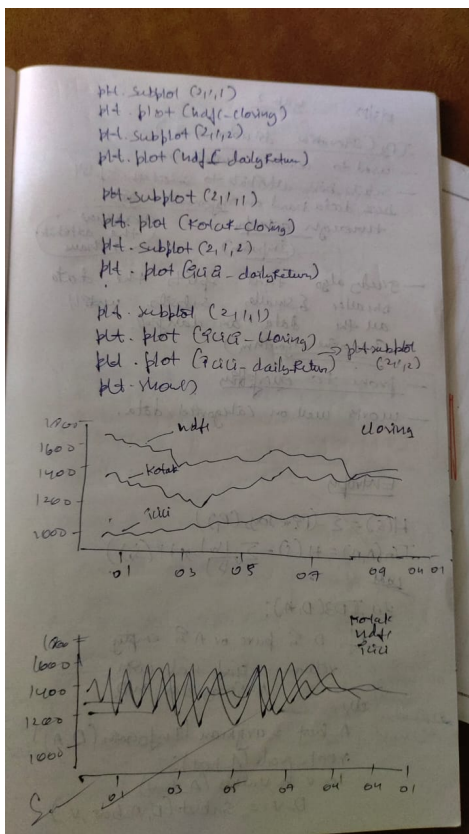 plt.subplot(2,1,1)
plt.plot(hdfc-closing)
plt.subplot(2,1,2)
plt.plot(hdfc_dailyReturn)
plt.subplot(2,1,1)
plt.plot(Kotak-closing)
plt.subplot(2,1,2)
plt.plot(icici-dailyReturn)
plt.subplot(2,1,1)
plt.plot(icici-closing)
plt.plot(icici-dailyReturn) → plt.subplot
(2,1,2)
plt.show()
hdfc
closing
1600
1400
Kotak
1200
icici
1000
01 03 05 07 09 04 01
Kotak
hdfc
icici
1600
1400
1200
1000
01 03 05 09 04 01